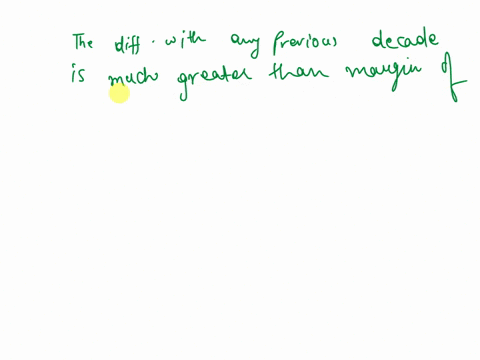 The diff. with any previous decade
is much greater than margin of